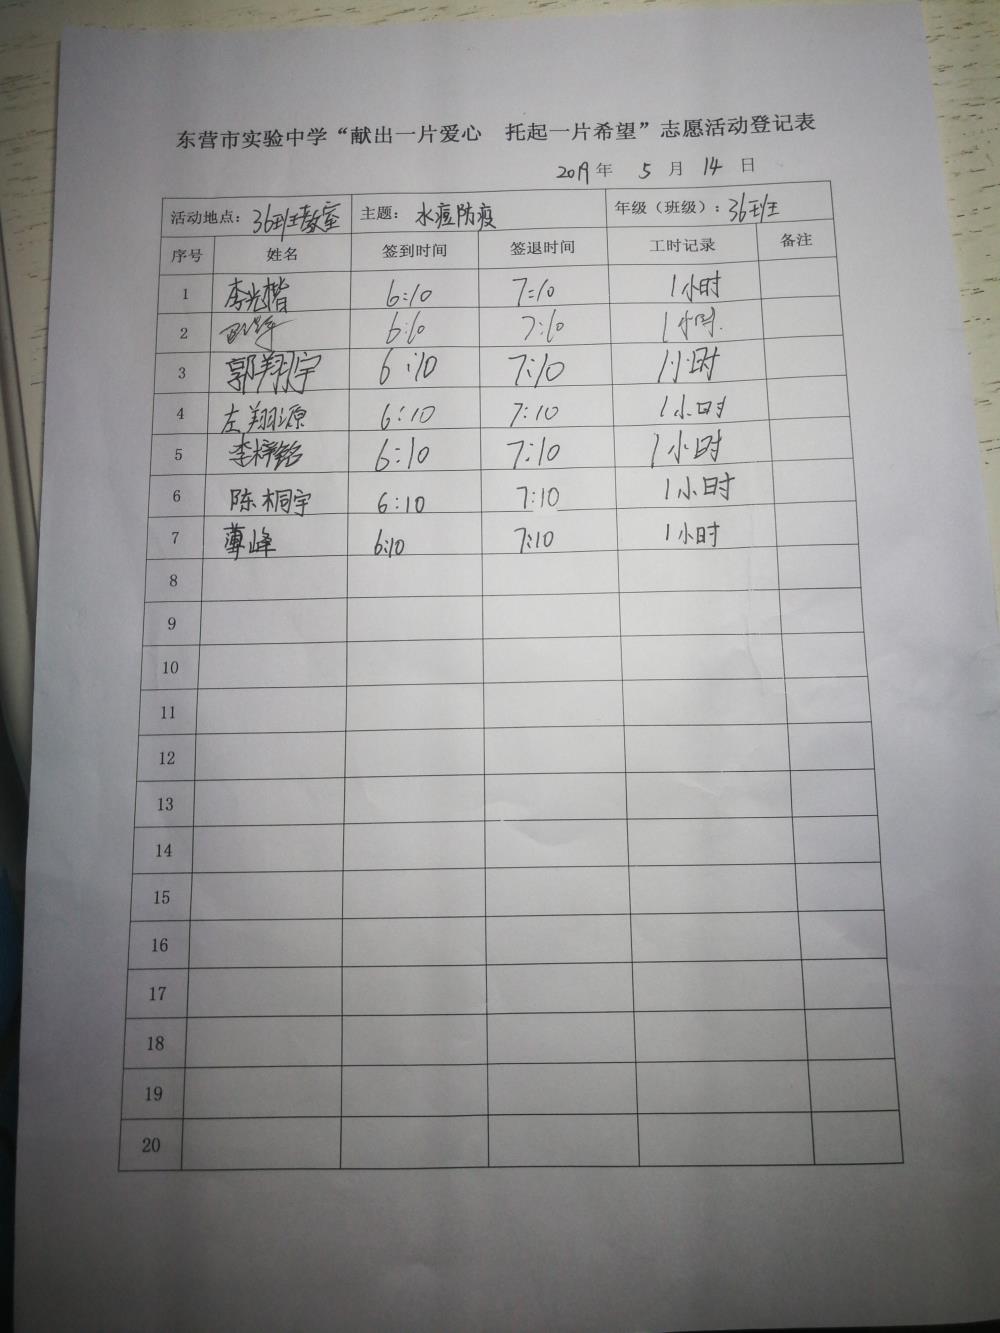 东营市实验中学“献出一片爱心 托起一片希望”志愿活动登记表
2019年 5 月 14 日
活动地点：36班教室 主题：水痘防疫 年级（班级）：36班
序号 姓名 签到时间 签退时间 工时记录 备注
1 李光楷 6:10 7:10 1小时
2 6:10 7:10 1小时.
3 郭翔宇 6:10 7:10 1小时
4 左翔源 6:10 7:10 1小时
5 李梓铭 6:10 7:10 1小时
6 陈桐宇 6:10 7:10 1小时
7 薄峰 6:10 7:10 1小时
8
9
10
11
12
13
14
15
16
17
18
19
20